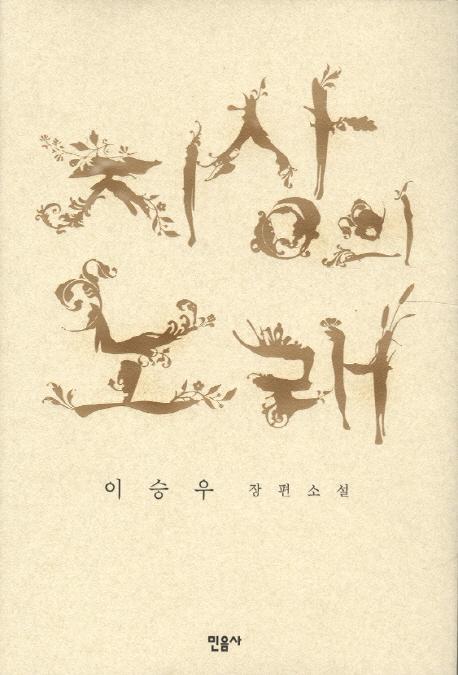 지상의
노래
이승우 장편소설
민음사